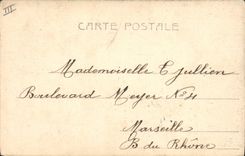 III
CARTE POSTALE
Mademoiselle E Jullien
Boulevard Meyer No 4
Marseille
B du Rhône